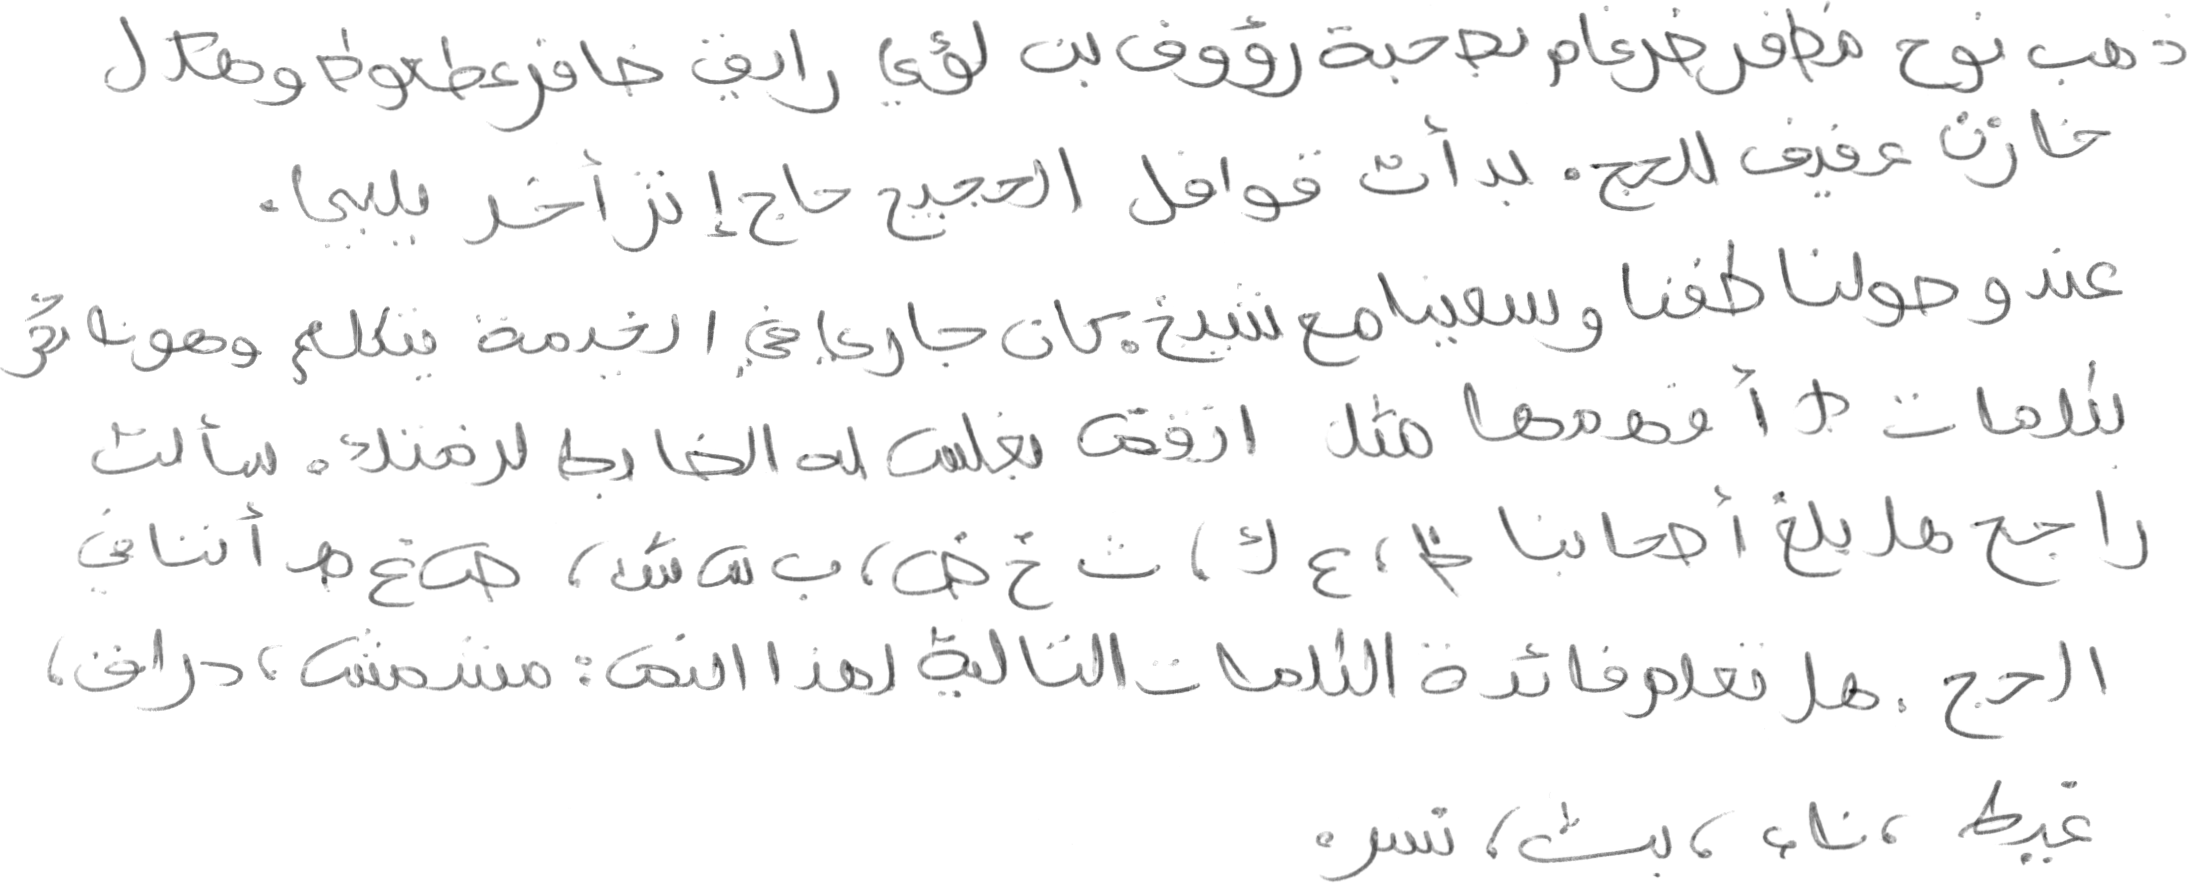 ذهب نوح مظفر ضرغام بصحبة رؤوف بن لؤي رايق ظافر عطعوط وهلال
خازن عفيف للحج. بدأت قوافل الحجيج حاج إثر أخر بليبيا.
عند وصولنا طفنا وسعينا مع شيخ. كان جاري في الخيمة يتكلم وهو نائم
كلمات لا أفهمها مثل انوفض بغلس له الضابط لرفنك. سألت
راجح هل بلغ أصحابنا ظ، ع ك، ث خ ض، ب س ش، ص غ ه أننا في
الحج. هل تعلم فائدة الكلمات التالية لهذا النص: مشمش، دراق،
غيط، ناء، بث، تسر.